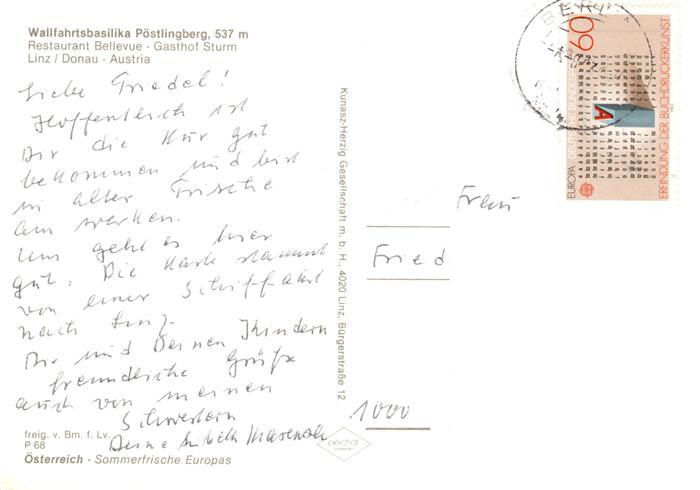 Wallfahrtsbasilika Pöstlingberg, 537 m
Restaurant Bellevue - Gasthof Sturm
Linz / Donau - Austria
Liebe Friedel!
Hoffentlich ist
Dir die Kur gut
bekommen und bist
in alter Frische
am werken.
Uns geht es hier
gut. Die Karte stammt
von einer Schiffahrt
nach Linz.
Dir und Deinen Kindern
freundliche Grüße
auch von meinen
Schwestern
Deine
freig. v. Bm. f. Lv.
P 68
Österreich - Sommerfrische Europas
Kunasz-Herzig Gesellschaft m. b. H., 4020 Linz, Bürgerstraße 12
BERL
60
EUROPA DEUTSCHE BUNDESPOST
A
ERFINDUNG DER BUCHDRUCKERKUNST
Frau
Fried
1000